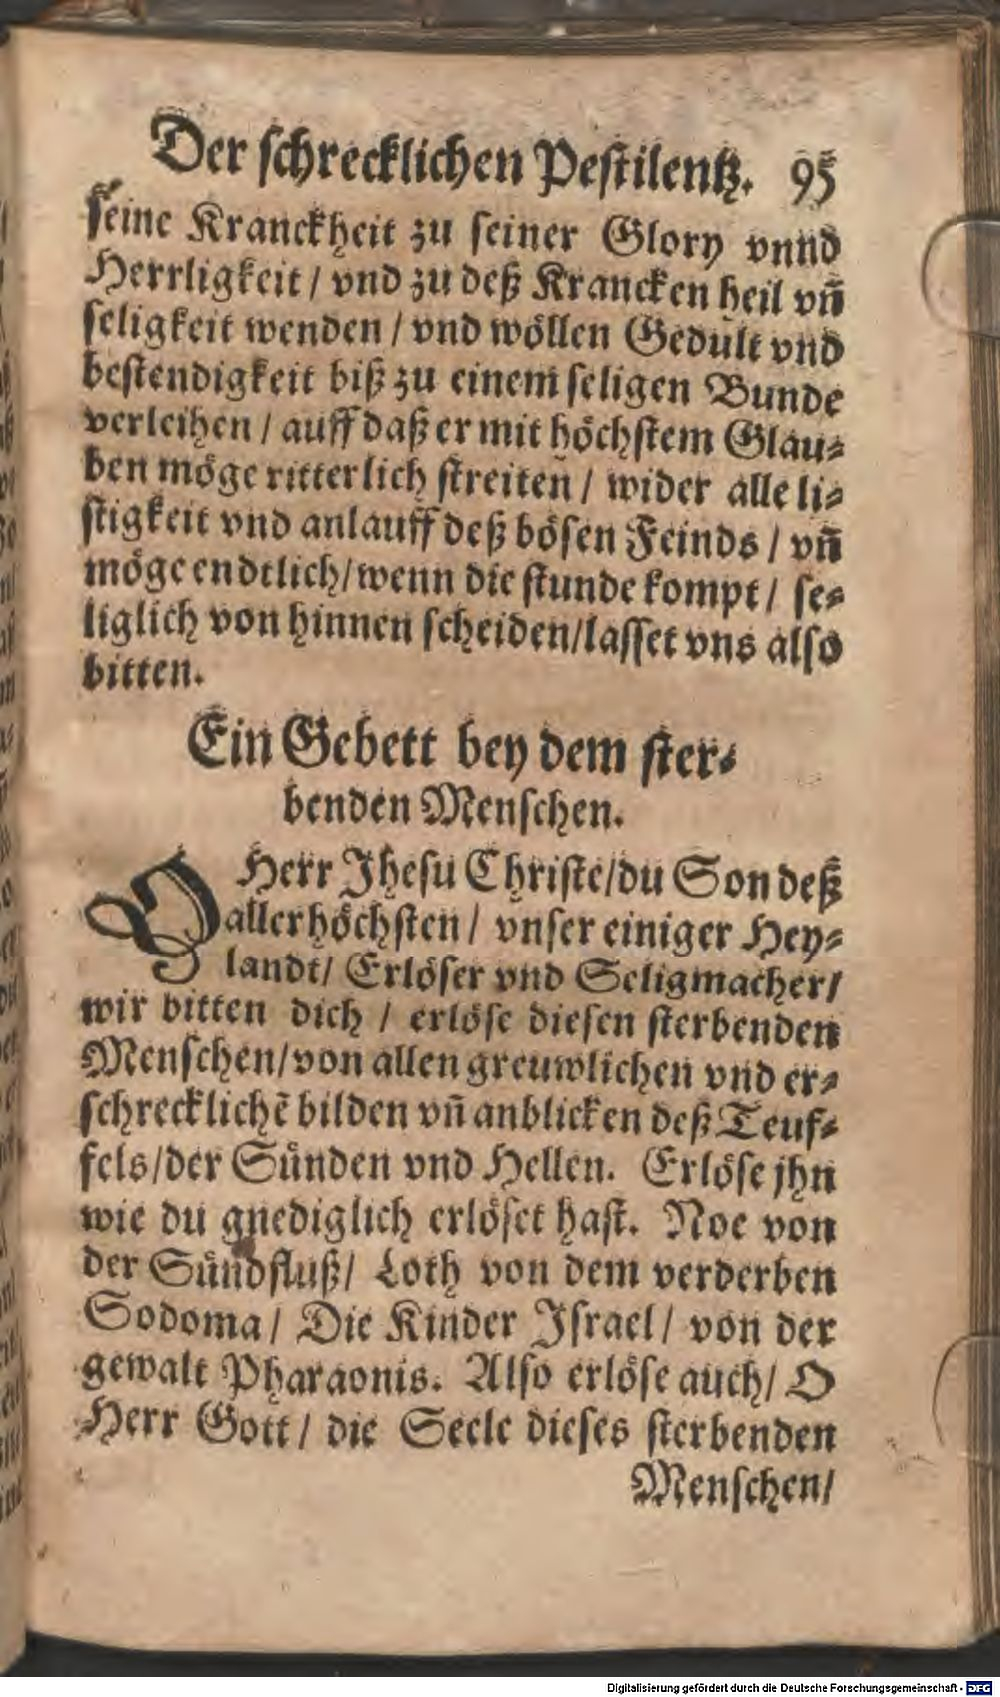 Der schrecklichen Pestilentz. 95
seine Kranckheit zu seiner Glory vnnd
Herrligkeit / vnd zu deß Krancken heil vn̄
seligkeit wenden / vnd wöllen Gedult vnd
bestendigkeit biß zu einem seligen Bunde
verleihen / auff daß er mit höchstem Glau-
ben möge ritterlich streiten / wider alle li-
stigkeit vnd anlauff deß bösen Feinds / vn̄
möge endtlich / wenn die stunde kompt / se-
liglich von hinnen scheiden / lasset vns also
bitten.
Ein Gebett bey dem ster-
benden Menschen.
O Herr Jhesu Christe / du Son deß
allerhöchsten / vnser einiger Hey-
landt / Erlöser vnd Seligmacher /
wir bitten dich / erlöse diesen sterbenden
Menschen / von allen greuwlichen vnd er-
schrecklichē bilden vn̄ anblicken deß Teuf-
fels / der Sünden vnd Hellen. Erlöse jhn
wie du gnediglich erlöset hast. Noe von
der Sündfluß / Loth von dem verderben
Sodoma / Die Kinder Jsrael / von der
gewalt Pharaonis. Also erlöse auch / O
Herr Gott / die Seele dieses sterbenden
Menschen /
Digitalisierung gefördert durch die Deutsche Forschungsgemeinschaft - DFG